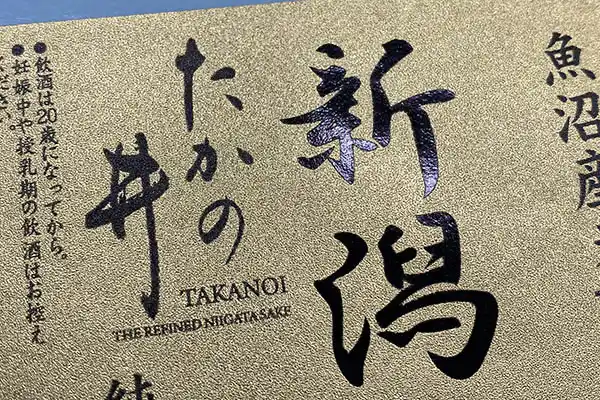 魚沼産
新潟
たかの
井
TAKANOI
THE REFINED NIIGATA SAKE
●飲酒は20歳になってから。
●妊娠中や授乳期の飲酒はお控え
ください。
純